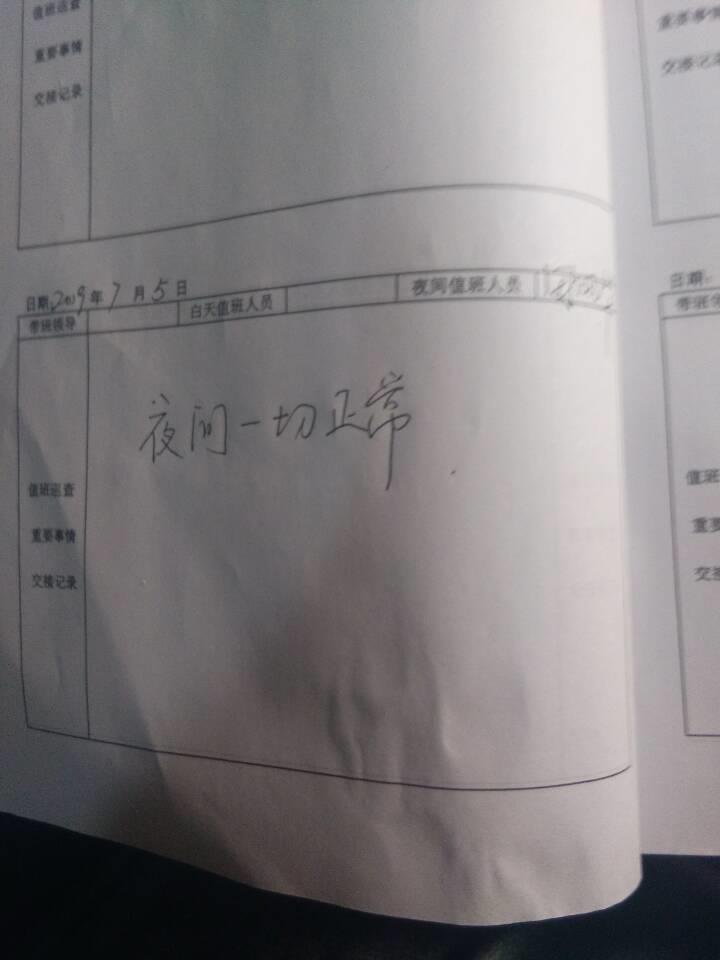 值班巡查
重要事情
交接记录
重要事情
交接记录
日期2019年7月5日
带班领导 白天值班人员 夜间值班人员
夜间一切正常
值班巡查
重要事情
交接记录
日期:
带班领
值班
重要
交接